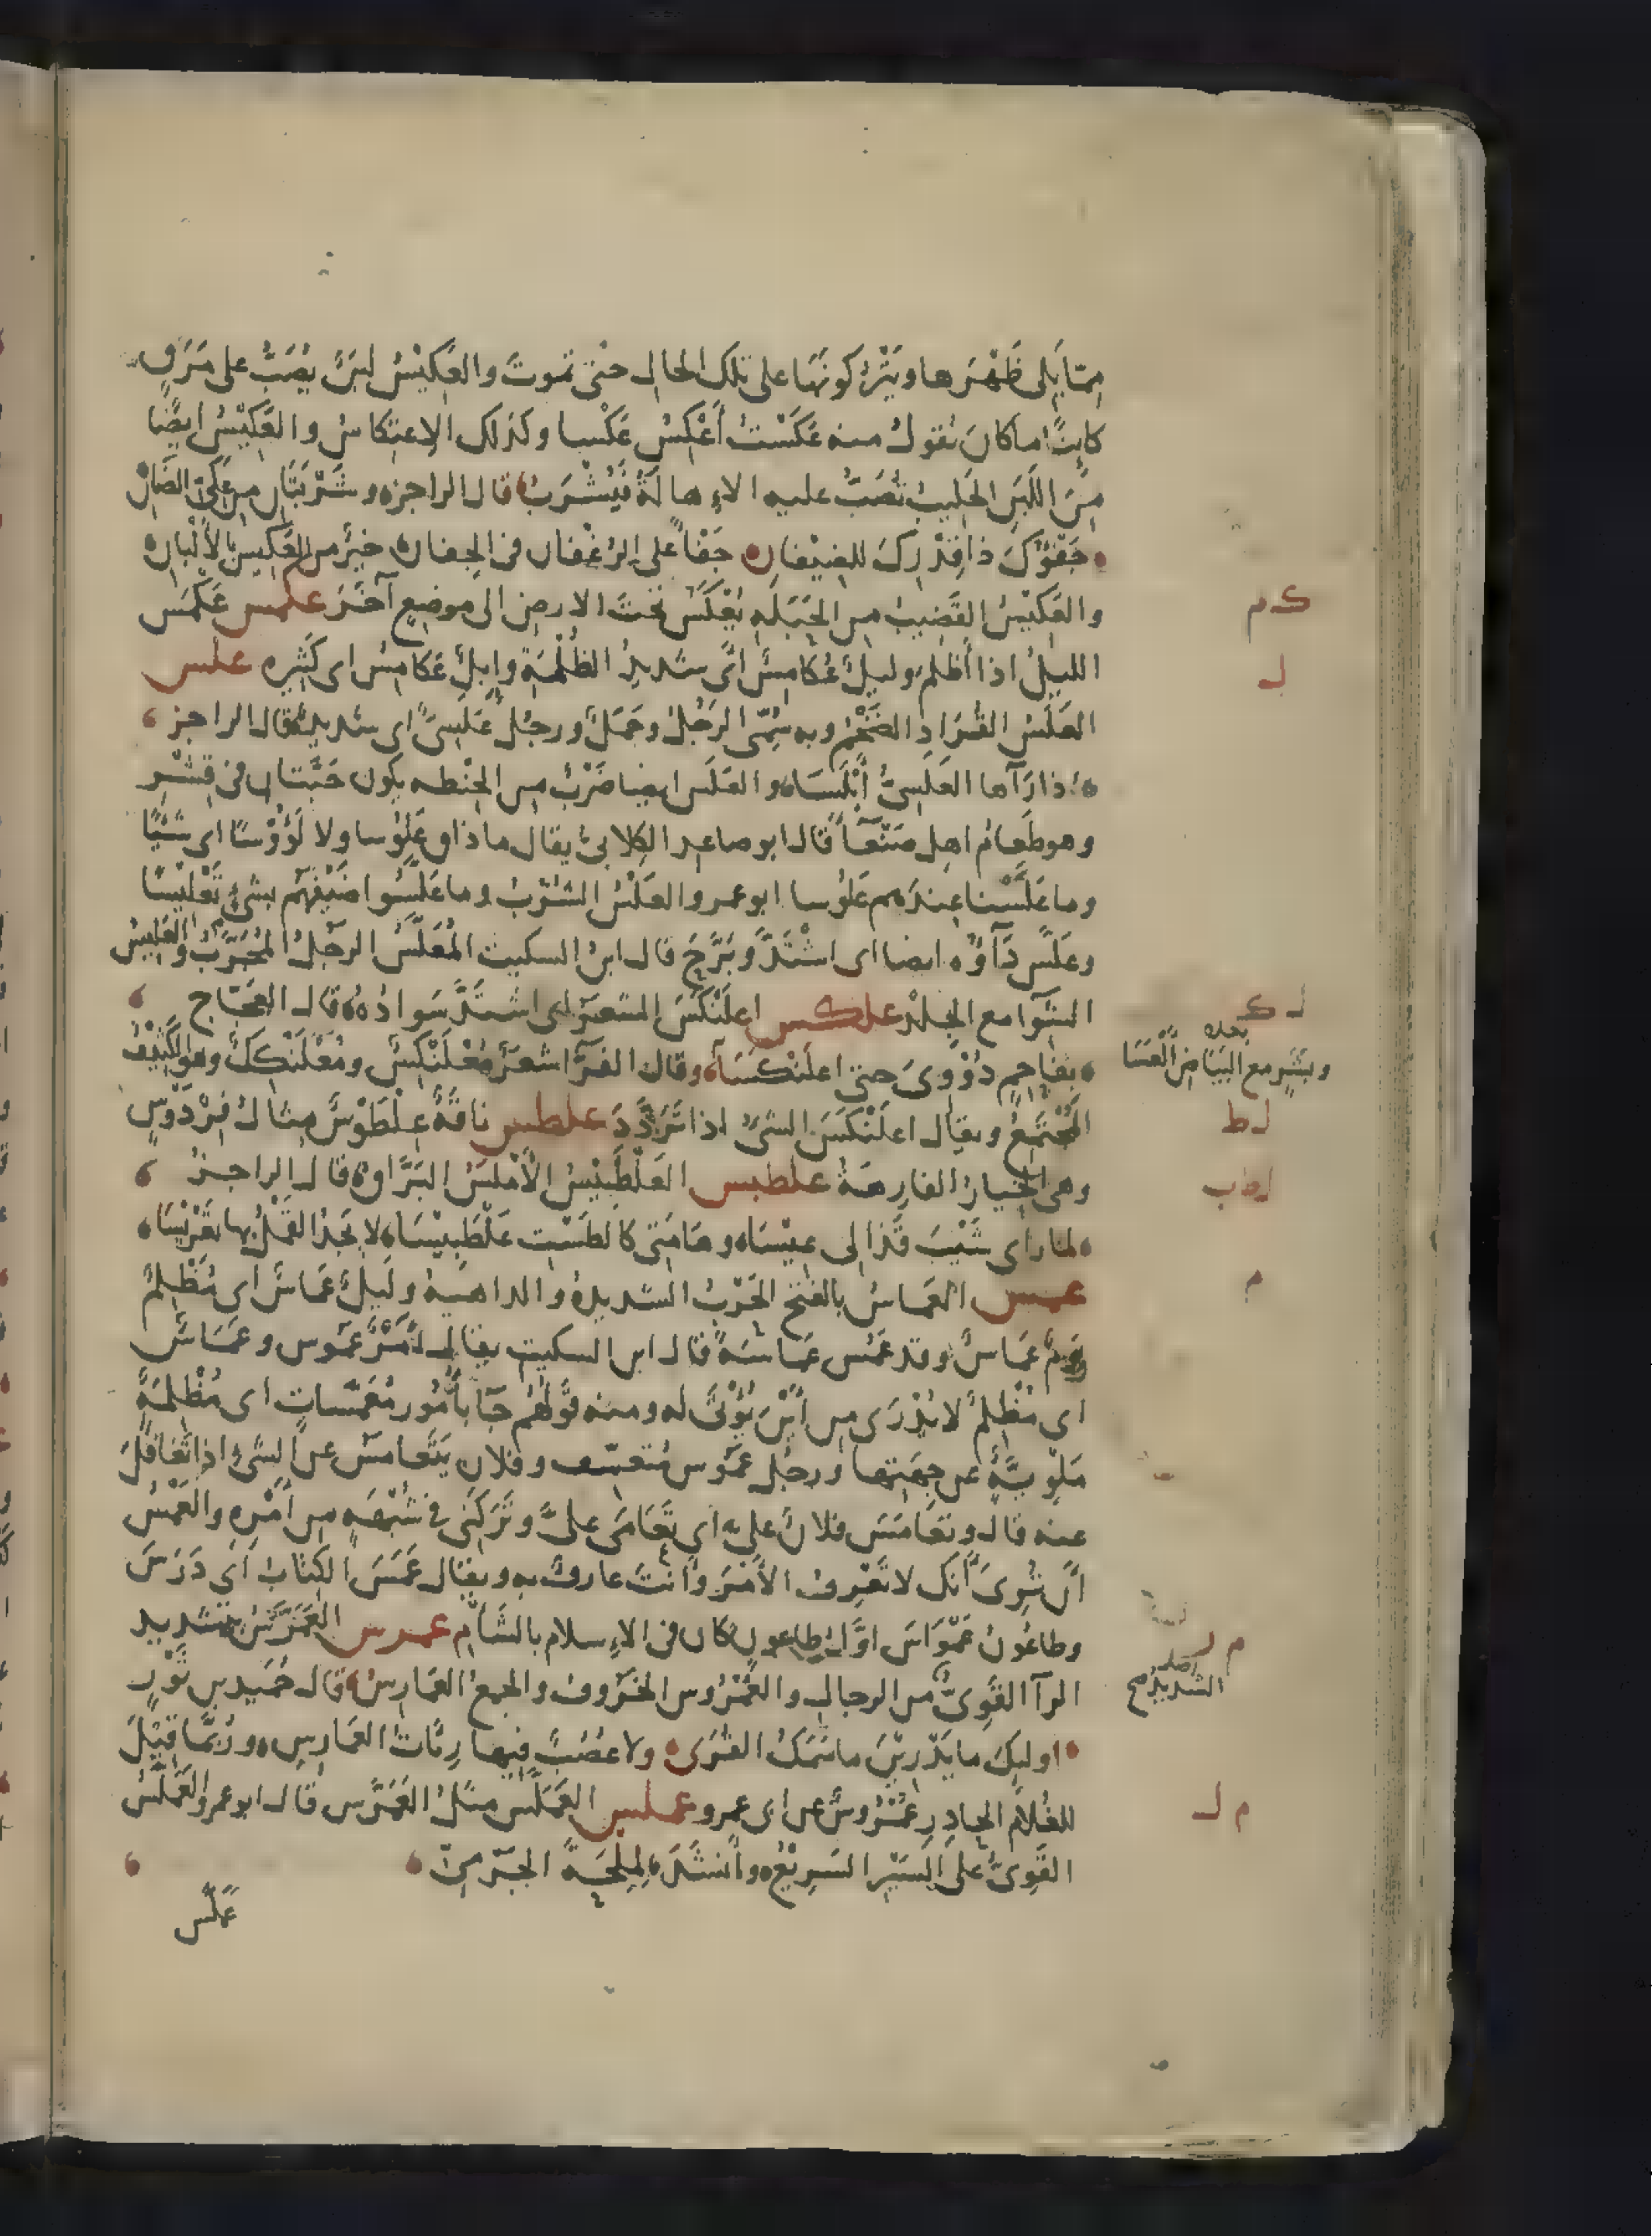 مما يلى ظَهْرَها ويُتْرَكُ كونُها على تلك الحال حتّى تموتَ والعَكِيْسُ لبَنٌ يُصَبُّ على مَرَقٍ
كائنًا ما كان تقول منه عَكَسْتُ أَعْكِسُ عَكْسا وكذلك الاعتكاسُ والعَكِيْسُ ايضًا
مِنَ اللَبَنِ الحَلِيبُ تُصَبُّ عليه الاِهالَةُ فيُشْرَبُ قال الراجز وشَرْبَتَانِ من عَكِىّ الضَانْ
جَفْؤُكَ ذا قِدْرِكَ للضِيْفانِ جَفْأً على الرُغْفان فى الجِفان خيرٌ من العَكِيْسِ بالأَلْبانِ
والعَكِيْسُ القَضِيبُ من الحَبَلَهِ يُعْكَسُ تحتَ الارض الى موضعٍ آخَرَ عكمس عَكْمَسَ
الليلُ اذا أَظْلَمَ وليلٌ عُكَامِسٌ أى شديدُ الظُلْمَةِ وإبلٌ عُكَامِسٌ اى كَثِيره علس
العَلَسُ القُرَادِ الضَخْمُ وبه سُمّى الرَجُلُ وجَمَلٌ ورجُلٌ عَلَسِىٌّ اى شديدٌ قال الراجز
اذا رَآها العَلَسِىُّ أَبْلَسَا والعَلَس ايضا ضَرْبٌ من الحِنْطه يكون حَبَّتان فى قِشْر
وهو طَعامُ اهل صَنْعَا قال ابو صاعد الكِلابىُّ يقال ما ذاق عَلُوْسا ولا لَؤُوْسًا اى شَيْئًا
وما عَلَّسْنا عِندَهم عَلُوسا ابو عمرو العَلْسُ الشُرْبُ وما عَلَّسُوا ضَيْفَهُم بشئٍ تَعْلِيْسًا
وعَلَّسَ دَآؤُه ايضا اى اشْتَدَّ وبَرَّحَ قال ابن السكيت المُعَلَّسُ الرجُلُ المُجَرَّبُ والعَلِيسُ
الشِوَآ مع الجِلْد علكس اعلَنْكَسَ الشعَرُ اى اشتَدَّ سَوادُهُ قال العجّاج
بفاحِمٍ دُوْوِىَ حتى اعلَنْكَسَا وقال الفرّآ شعَرٌ مُعْلَنْكِسٌ ومُعْلَنْكِكٌ وهو الكَثِيْفُ
المُجْتَمِعُ ويقال اعلَنْكَسَ الشئُ اذا تَرَدَّدَ علطس ناقةٌ عِلْطَوْسٌ مثال فِرْدَوْسٍ
وهى الخِيارُ الفارِهةُ علطبس العَلْطَبِيْسُ الأَمْلَسُ البَرَّاقُ قال الراجز
لما راى شَيْبَ قَذالى عِيْسَا وهامَتِى كالطَسْتِ عَلْطَبِيْسَا لا يَجدُ القَمْلُ بها تَعْرِيْسَا
عمس العَماسُ بالفتح الحَرْبُ الشديدة والداهيةُ ولَيلٌ عَماسٌ أى مُظْلِمٌ
ويومٌ عَماسٌ وقد عَمُس عَماسَةً قال ابن السكيت يقال أَمْرٌ عَمُوس وعَمَاسٌ
اى مُظْلِمٌ لا يُدْرَى من أَيْنَ يُؤْتَى له ومنه قولهُم جآ بأُمُور مُعَمَّسات اى مُظْلِمَةٍ
مَلْوِيَّةٍ عن جِهَتِها ورجل عَمُوس مُتعسّف وفلان يَتَعامَسُ عن الشئ اذا تَغافَلَ
عنه قال وتعامَسَ فلانٌ علىّ اى تَعَامَى علىَّ وتَرَكَنِى فى شُبْهَه من أَمْرِه والعَمْسُ
أن تُرِىَ أنّك لا تَعْرِفُ الأَمْرَ وأَنْتَ عارِفٌ بهِ ويقال عَمَسَ الكتابُ أى دَرَسَ
وطاعُونُ عَمَوَاسَ اوّلُ طاعونٍ كان فى الاِسلام بالشَأمِ عمرس العَمَرَّسُ بتشديد
الرآ القَوِىُّ من الرجال والعُمْرُوس الخَرُوف والجمعُ العَمارِسُ قال حُمَيد بن ثَوْرٍ
اولئِكَ ما يَدْرِيْنَ ما سَمَكُ القُرَى ولا عُصُبٌ فيها رِئَاتُ العَمارِسِ وربَّما قِيْلَ
للغُلام الحادِرِ عُمْرُوسٌ عن ابى عمرو عملس العَمَلَّسُ مثلُ العَمَرَّس قال ابو عمرو العَمَلَّسُ
القَوِىُّ على السَيْرِ السَرِيْعُ وأَنشَدَ لِمِلْحَةَ الجَرْمِىّ
عَمَلَّس
ك م
ل
ل ك
بعده
وبَشَرٍ مع البَيَاضِ أَلْعَسَا
ل ط
ل ط ب
م
م ر
اصله
الشديد صح
م ل